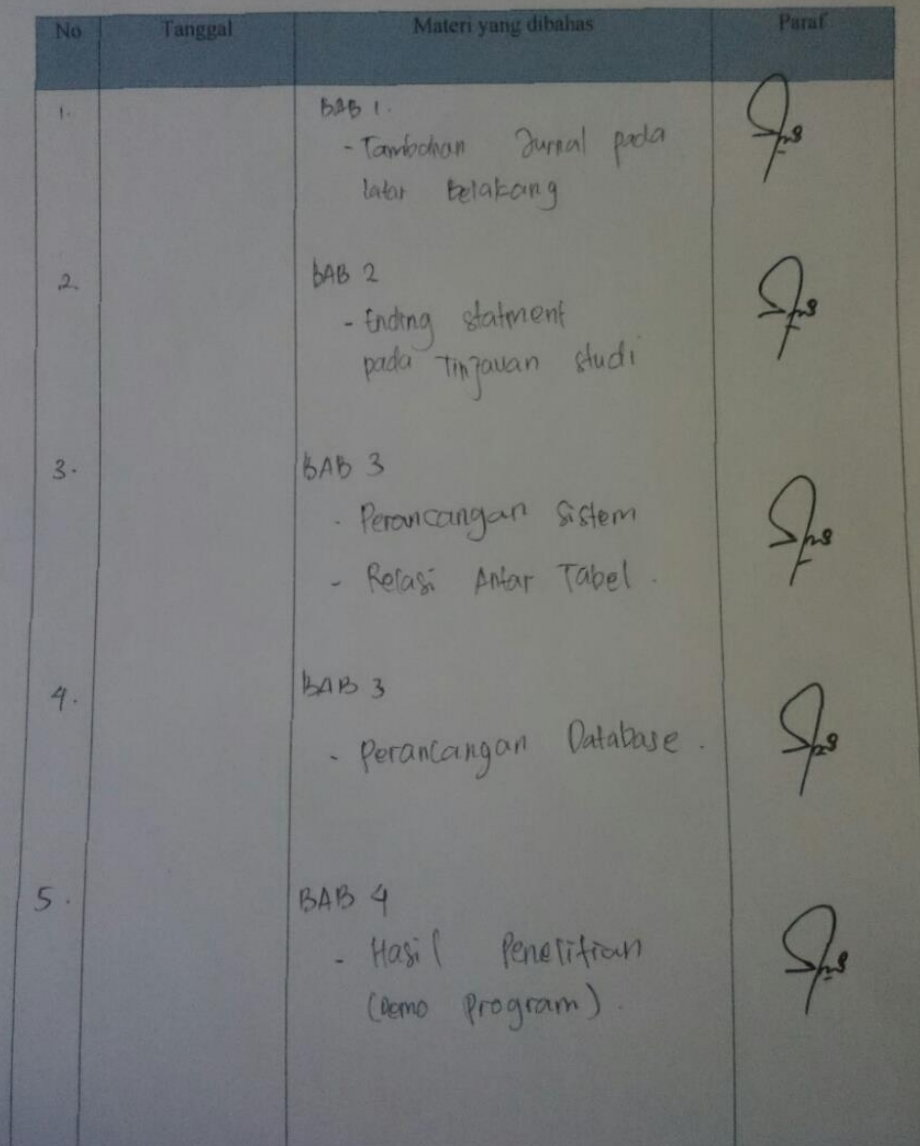 No Tanggal Materi yang dibahas Paraf
1. BAB 1.
- Tambahan Jurnal pada
latar Belakang
2. BAB 2
- Ending statment
pada Tinjauan studi
3. BAB 3
- Perancangan Sistem
- Relasi Antar Tabel.
4. BAB 3
- Perancangan Database.
5. BAB 4
- Hasil Penelitian
(Demo Program).